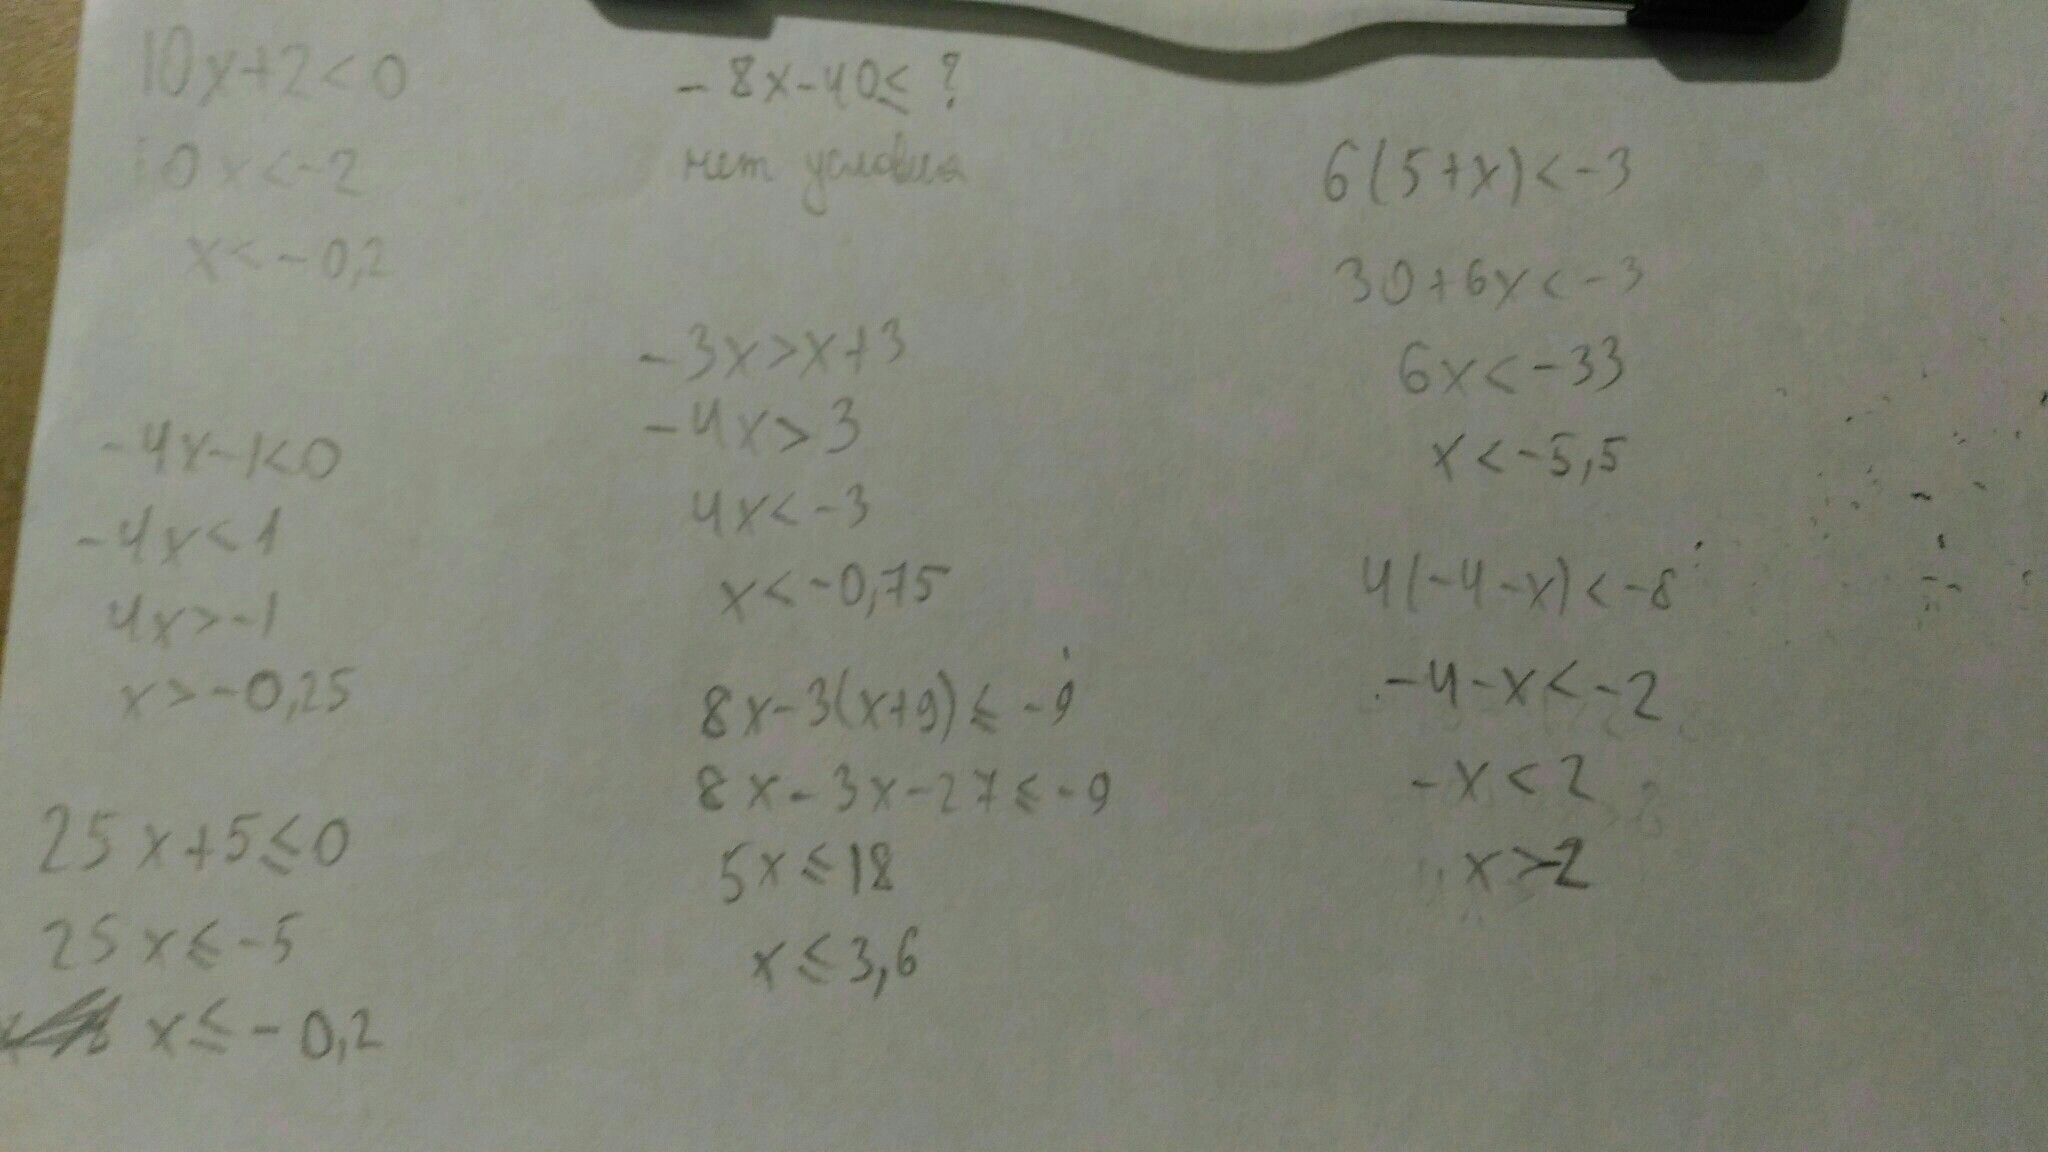 10x+2<0
10x<-2
x<-0,2
-4x-1<0
-4x<1
4x>-1
x>-0,25
25x+5≤0
25x≤-5
x≤-0,2
-8x-40≤ ?
нет условия
-3x>x+3
-4x>3
4x<-3
x<-0,75
8x-3(x+9)≤-9
8x-3x-27≤-9
5x≤18
x≤3,6
6(5+x)<-3
30+6x<-3
6x<-33
x<-5,5
4(-4-x)<-8
-4-x<-2
-x<2
x>-2